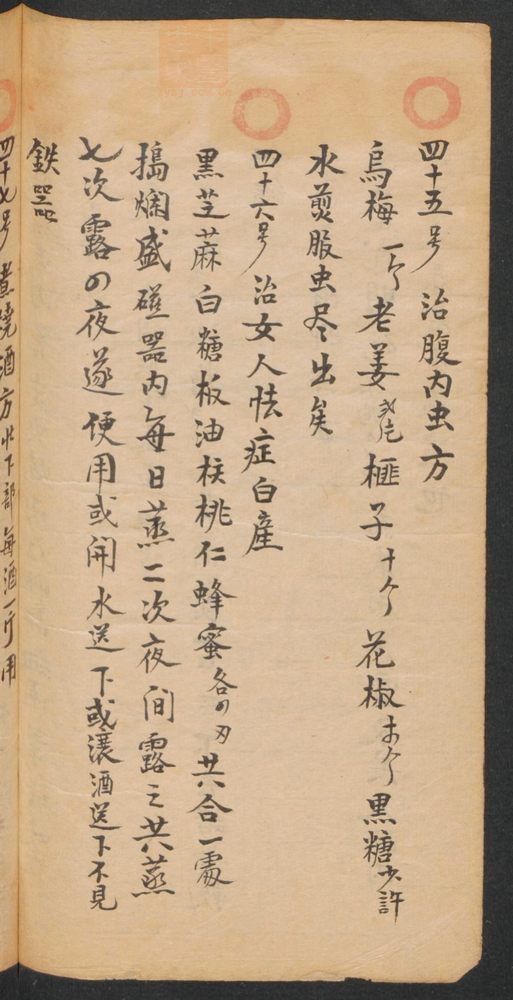 四十五号 治腹内虫方
烏梅一个 老姜弍片 榧子十个 花椒廿个 黒糖少許
水煎服虫尽出矣
四十六号 治女人怯症白産
黒芝蔴白糖板油核桃仁蜂蜜各四刄共合一處
搗爛盛磁器内每日蒸二次夜间露之共蒸
七次露四夜遂便用或開水送下或滚酒送下不見
鉄器
四十七号 煮燒酒方 下部每酒一斤用